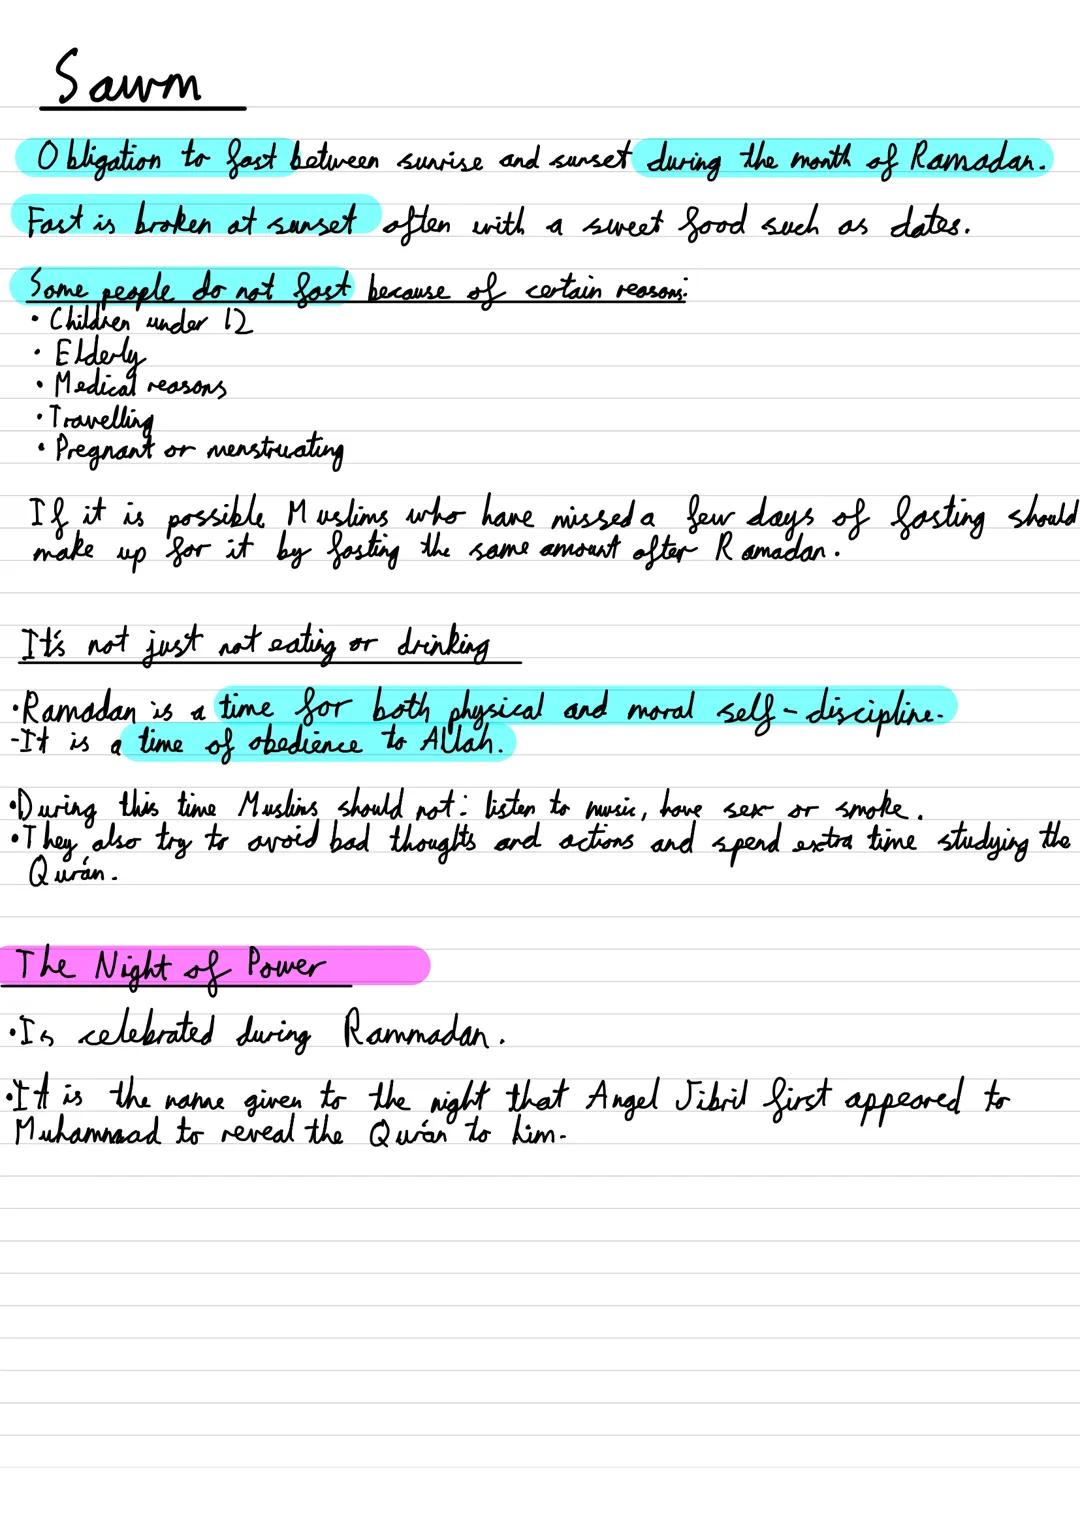 Sawm
Obligation to fast between sunrise and sunset during the month of Ramadan.
Fast is broken at sunset often with a sweet food such as dates.
Some people do not fast because of certain reasons:
• Children under 12
• Elderly
• Medical reasons
• Travelling
• Pregnant or menstruating
If it is possible Muslims who have missed a few days of fasting should
make up for it by fasting the same amount after Ramadan.
It's not just not eating or drinking
• Ramadan is a time for both physical and moral self-discipline.
- It is a time of obedience to Allah.
• During this time Muslims should not: listen to music, have sex or smoke.
• They also try to avoid bad thoughts and actions and spend extra time studying the
Qur'an.
The Night of Power
• Is celebrated during Rammadan.
• It is the name given to the night that Angel Jibril first appeared to
Muhammad to reveal the Qur'an to him.